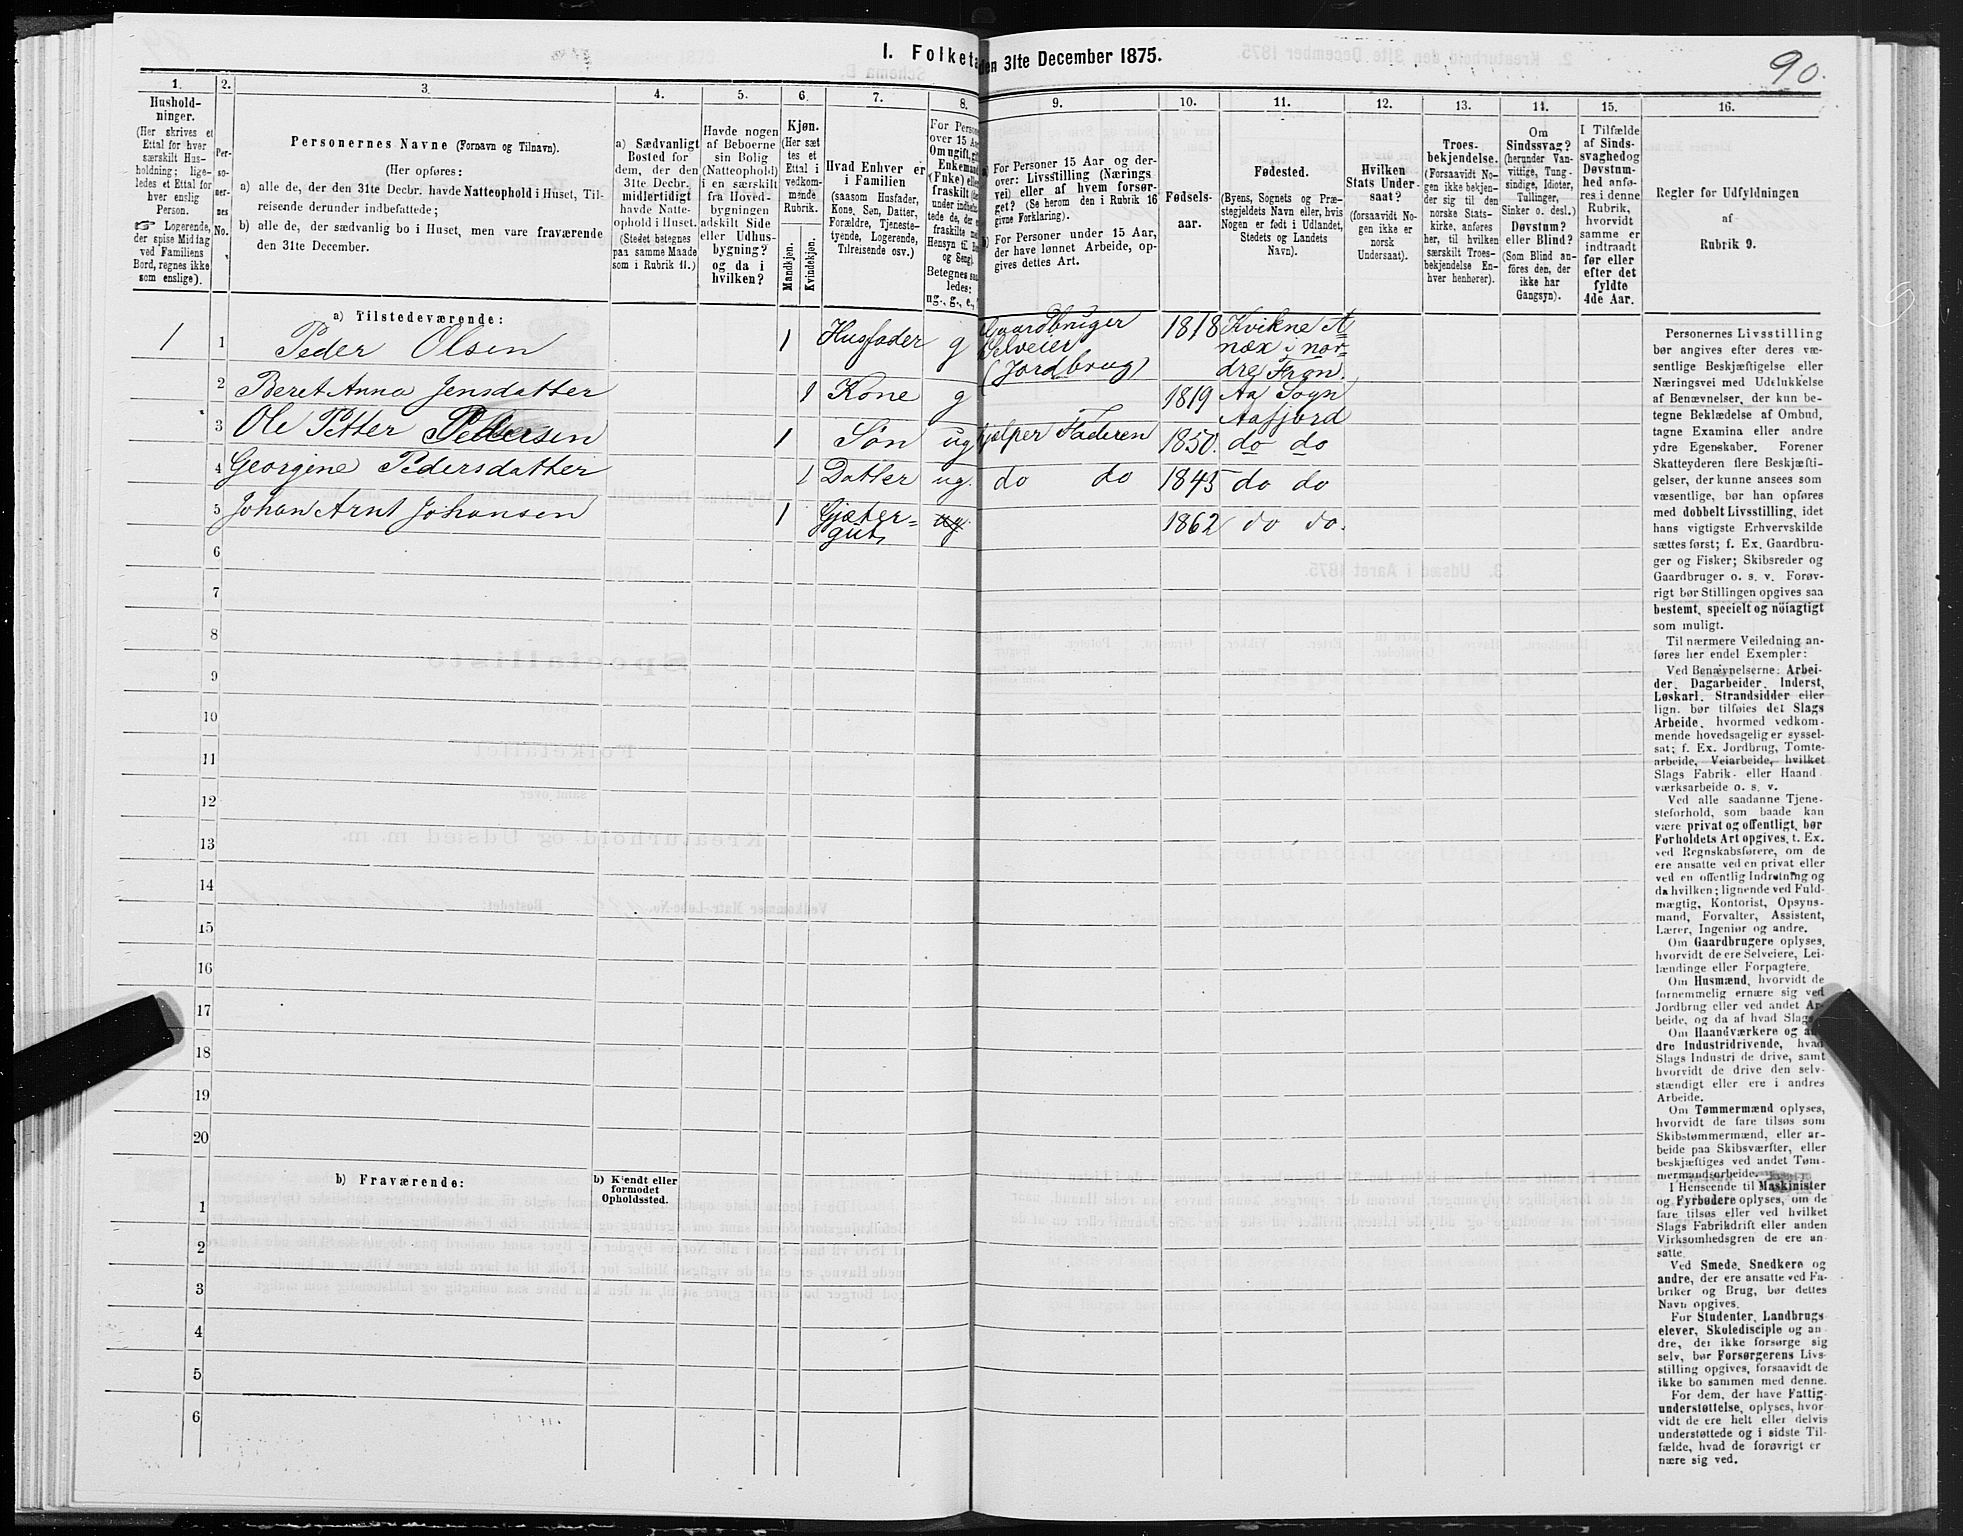 I. Folketa den 31te December 1875.
90.
1.
2.
3.
4.
5.
6.
7.
8.
9.
10.
11.
12.
13.
14.
15.
16.
Hushold-
ninger.
(Her skrives et
Ettal for hver
særskilt Hus-
holdning; lige-
ledes et Ettal for
hver enslig
Person.
☞ Logerende,
der spise Middag
ved Familiens
Bord, regnes ikke
som enslige).
Per-
so-
ner-
nes
No.
Personernes Navne (Fornavn og Tilnavn).
(Her opføres:
a) alle de, der den 31te Decbr. havde Natteophold i Huset, Til-
reisende derunder indbefattede;
b) alle de, der sædvanlig bo i Huset, men vare fraværende
den 31te December.
a) Sædvanligt
Bosted for
dem, der den
31te Decbr.
midlertidigt
havde Natte-
ophold i Huset.
(Stedet betegnes
paa samme Maade
som i Rubrik 11.)
Havde nogen
af Beboerne
sin Bolig
(Natteophold)
i en særskilt
fra Hoved-
bygningen
adskilt Side
eller Udhus-
bygning?
og da i
hvilken?
Kjøn.
(Her sæt
tes et
Ettal i
vedkom-
mende
Rubrik.
Mandkjøn.
Kvindekjøn.
Hvad Enhver er
i Familien
(saasom Husfader,
Kone, Søn, Datter,
Forældre, Tjeneste-
tyende, Logerende,
Tilreisende osv.)
For Perso
over 15 Aa
Om ugift, gift
Enkemand
(Fuke) elle
fraskilt (de
under indbefat
tede de, der e
fraskilte me
Hensyn til Bo
og Seng).
Betegnes saa
ledes:
ug., g., e.,
a) For Personer 15 Aar og der-
over: Livsstilling (Nærings
vei) eller af hvem forsør-
get? (Se herom den i Rubrik 16
givne Forklaring).
b) For Personer under 15 Aar,
der have lønnet Arbeide, op-
gives dettes Art.
Fødsels-
aar.
Fødested.
(Byens, Sognets og Præ-
stegjeldets Navn eller, hvis
Nogen er født i Udlandet,
Stedets og Landets
Navn).
Hvilken
Stats Under-
saat?
(forsaavidt No-
gen ikke er
norsk
Undersaat).
Troes-
bekjendelse.
(Forsaavidt No-
gen ikke bekjen-
der sig til den
norske Stats-
kirke, anføres
her, til hvilken
særskilt Troes-
bekjendelse En-
hver henhører).
Om
Sindssvag?
(herunder Van-
vittige, Tung-
sindige, Idioter,
Tullinger,
Sinker o. desl.)
Døvstum?
eller Blind?
(Som Blind an-
føres den, der
ikke har
Gangsyn).
I Tilfælde
af Sinds-
svaghed og
Døvstum-
hed anfø-
res i denne
Rubrik,
hvorvidt
samme er
indtraadt
før eller
efter det
fyldte
4de Aar.
Regler for Udfyldningen
af
Rubrik 9.
a) Tilstedeværende:
1 1 Peder Olsen 1 Husfader g Gaardbruger Selveier (Jordbrug) 1818 Kvikne A
nex i nor-
dre Fron.
2 Beret Anna Jensdatter 1 Kone g 1819 Aa Sogn
Aafjord
3 Ole Petter Pettersen 1 Søn ug hjælper Faderen 1850. do do
4 Georgine Pedersdatter 1 Datter ug. do do 1845 do do
5 Johan Arnt Johansen 1 Gjæter-
gut ug 1862 do do.
6
7
8
9
10
11
12
13
14
15
16
17
18
19
20
b) Fraværende:
b) Kjendt eller
formodet
Opholdssted.
1
2
3
4
5
6
Personernes Livsstilling
bør angives efter deres væ-
sentlige Beskjæftigelse eller
Næringsvei med Udelukkelse
af Benævnelser, der kun be-
tegne Beklædelse af Ombud,
tagne Examina eller andre
ydre Egenskaber. Forener
Skatteyderen flere Beskjæfti-
gelser, der kunne ansees som
væsentlige, bør han opføres
med dobbelt Livsstilling, idet
hans vigtigste Erhvervskilde
sættes først; f. Ex. Gaardbru-
ger og Fisker; Skibsreder og
Gaardbruger o. s. v. Forøv-
rigt bør Stillingen opgives saa
bestemt, specielt og nöiagtigt
som muligt.
Til nærmere Veiledning an-
føres her endel Exempler:
Ved Benævnelserne: Arbei-
der, Dagarbeider, Inderst,
Løskarl, Strandsidder eller
lign. bør tilføies det Slags
Arbeide, hvormed vedkom-
mende hovedsagelig er syssel-
sat; f. Ex. Jordbrug, Tomte-
arbeide, Veiarbeide, hvilket
Slags Fabrik- eller Haand
værksarbeide o. s. v.
Ved alle saadanne Tjene-
steforhold, som baade kan
være privat og offentligt, bør
Forholdets Art opgives, t. Ex.
ved Regnskabsførere, om de
ere ansatte ved en privat eller
ved en offentlig Indretning og
da hvilken; lignende ved Fuld-
mægtig, Kontorist, Opsyns-
mand, Forvalter, Assistent,
Lærer, Ingeniør og andre.
Om Gaardbrugere oplyses,
hvorvidt de ere Selveiere, Lei-
lændinge eller Forpagtere.
Om Husmænd, hvorvidt de
fornemmelig ernære sig ved
Jordbrug eller ved andet Ar-
beide, og da af hvad Slags.
Om Haandværkere og an-
dre Industridrivende, hvad
Slags Industri de drive, samt
hvorvidt de drive den selv-
stændigt eller ere i andres
Arbeide.
Om Tømmermænd oplyses,
hvorvidt de fare tilsøs som
Skibstømmermænd, eller ar-
beide paa Skibsværfter, eller
beskjæftiges ved andet Tøm-
mermandsarbeide.
I Henseende til Maskinister
og Fyrbødere oplyses, om de
fare tilsøs eller ved hvilket
Slags Fabrikdrift eller anden
Virksomhedsgren de ere an-
satte.
Ved Smede, Snedkere og
andre, der ere ansatte ved Fa-
briker og Brug, bør dettes
Navn opgives.
For Studenter, Landbrugs
elever, Skoledisciple og an
dre, der ikke forsørge sig
selv, bør Forsørgerens Livs-
stilling opgives, forsaavidt de
ikke bo sammen med denne.
For dem, der have Fattig-
understøttelse, oplyses, hvor-
vidt de ere helt eller delvis
understøttede og i sidste Til-
fælde, hvad de forøvrigt er
nære sig ved.